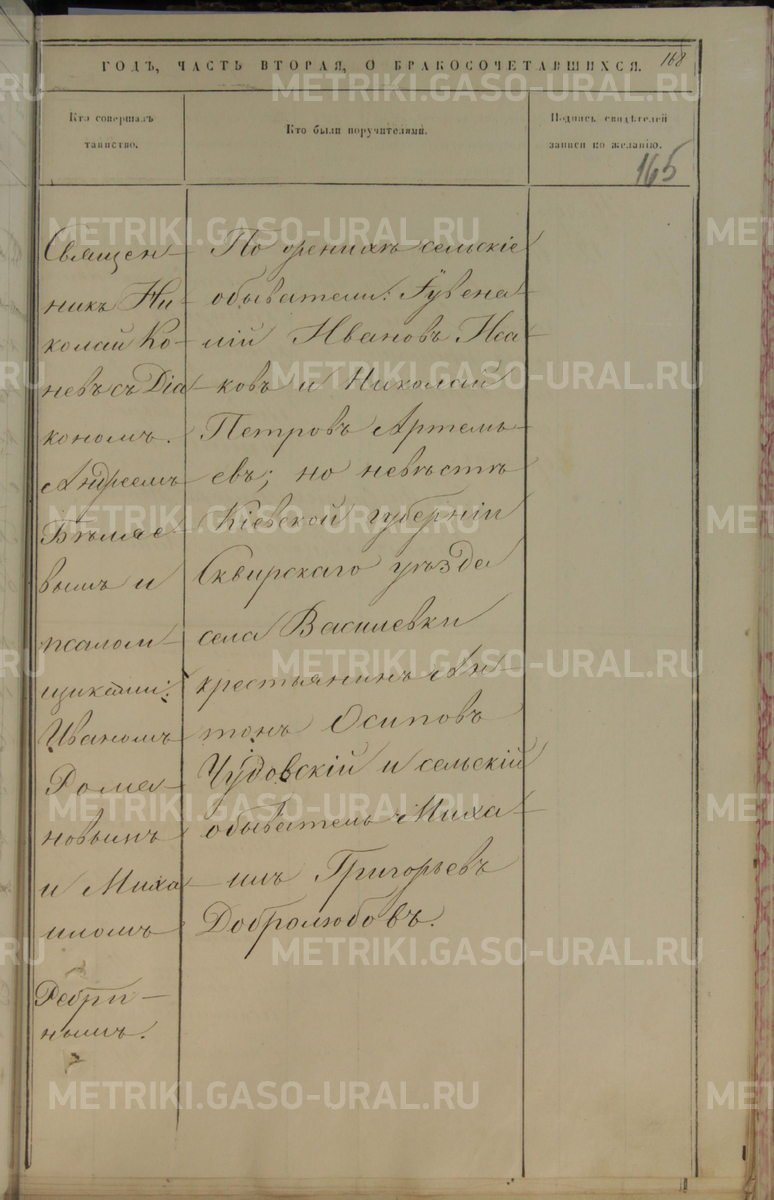 168
ГОДЪ, ЧАСТЬ ВТОРАЯ, О БРАКОСОЧЕТАВШИХСЯ.
Кто совершалъ
таинство.
Кто были поручителями.
Подпись свидѣтелей
записи по желанію.
165
Священ-
никъ Ни-
колай Ко-
невъ съ Діа-
кономъ
Андреемъ
Бѣляе-
вымъ и
псалом-
щиками:
Иваномъ
Рома-
новымъ
и Миха-
иломъ
Ребри-
нымъ.
По женихѣ сельскіе
обыватели: Іувена-
лій Ивановъ Иса-
ковъ и Николай
Петровъ Артемь-
евъ; по невѣстѣ
Кіевской губерніи
Сквирскаго уѣзда
села Василевки
крестьянинъ Ан-
тонъ Осиповъ
Чудовскій и сельскій
обыватель Миха-
илъ Григорьевъ
Добролюбовъ.
METRIKI.GASO-URAL.RU